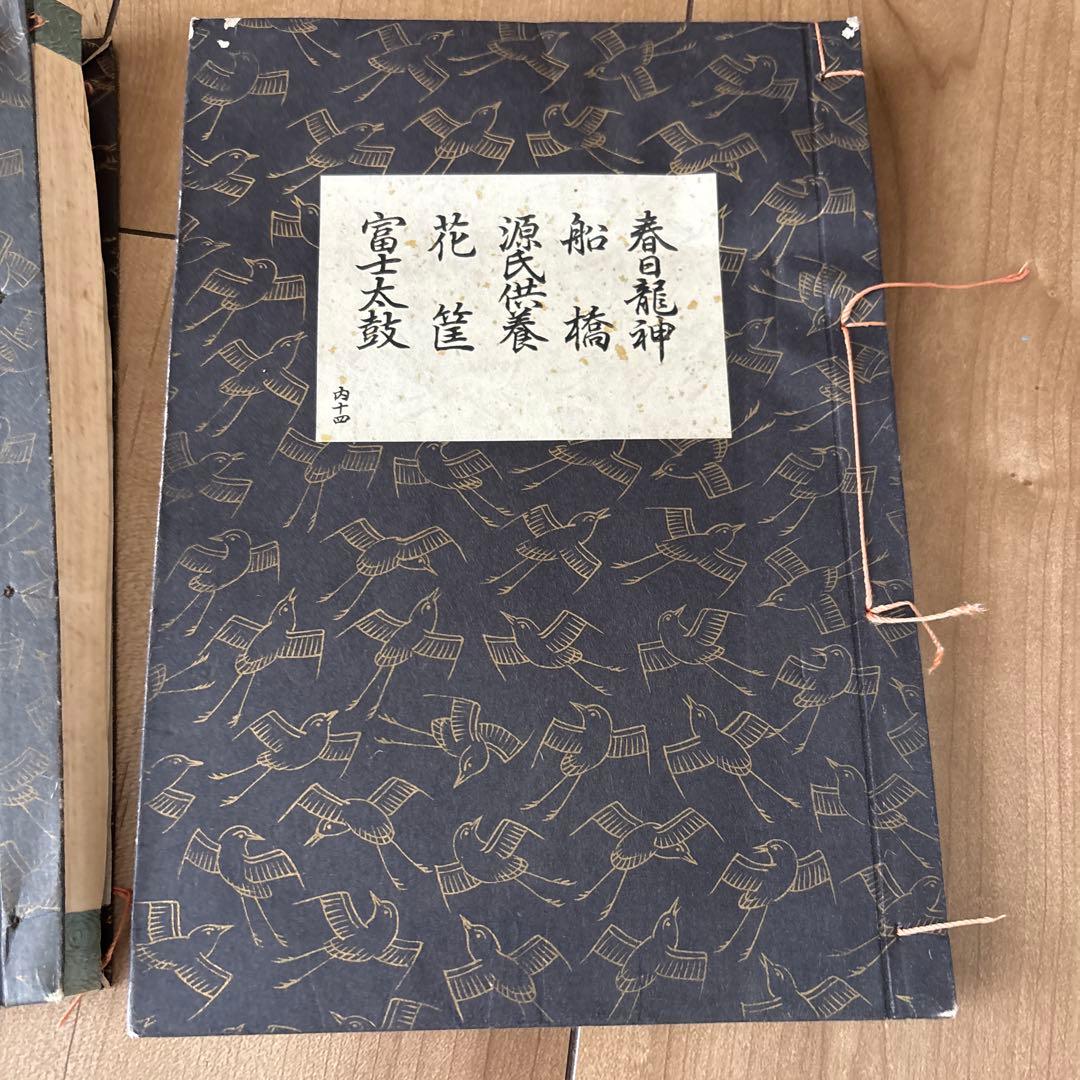 春日龍神
船橋
源氏供養
花筐
富士太鼓
内十四